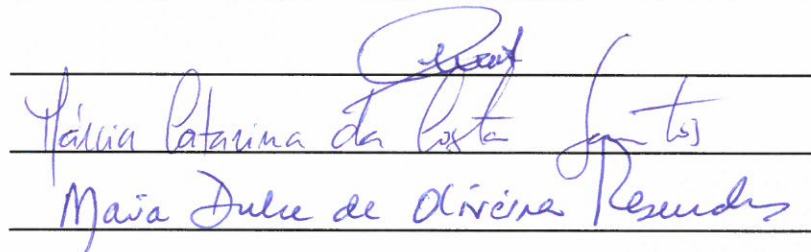 Márcia Catarina da Costa Santos
Maria Dulce de Oliveira Resendes